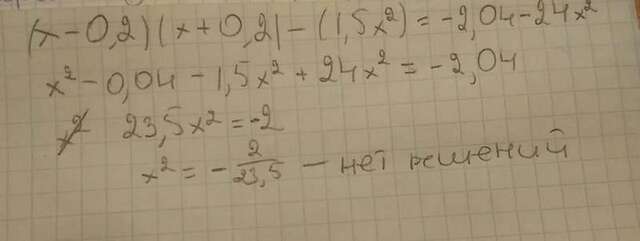 (x-0,2)(x+0,2)-(1,5x²)=-2,04-24x²
x²-0,04-1,5x²+24x²=-2,04
x² 23,5x²=-2
x²=-2/23,5 - нет решений